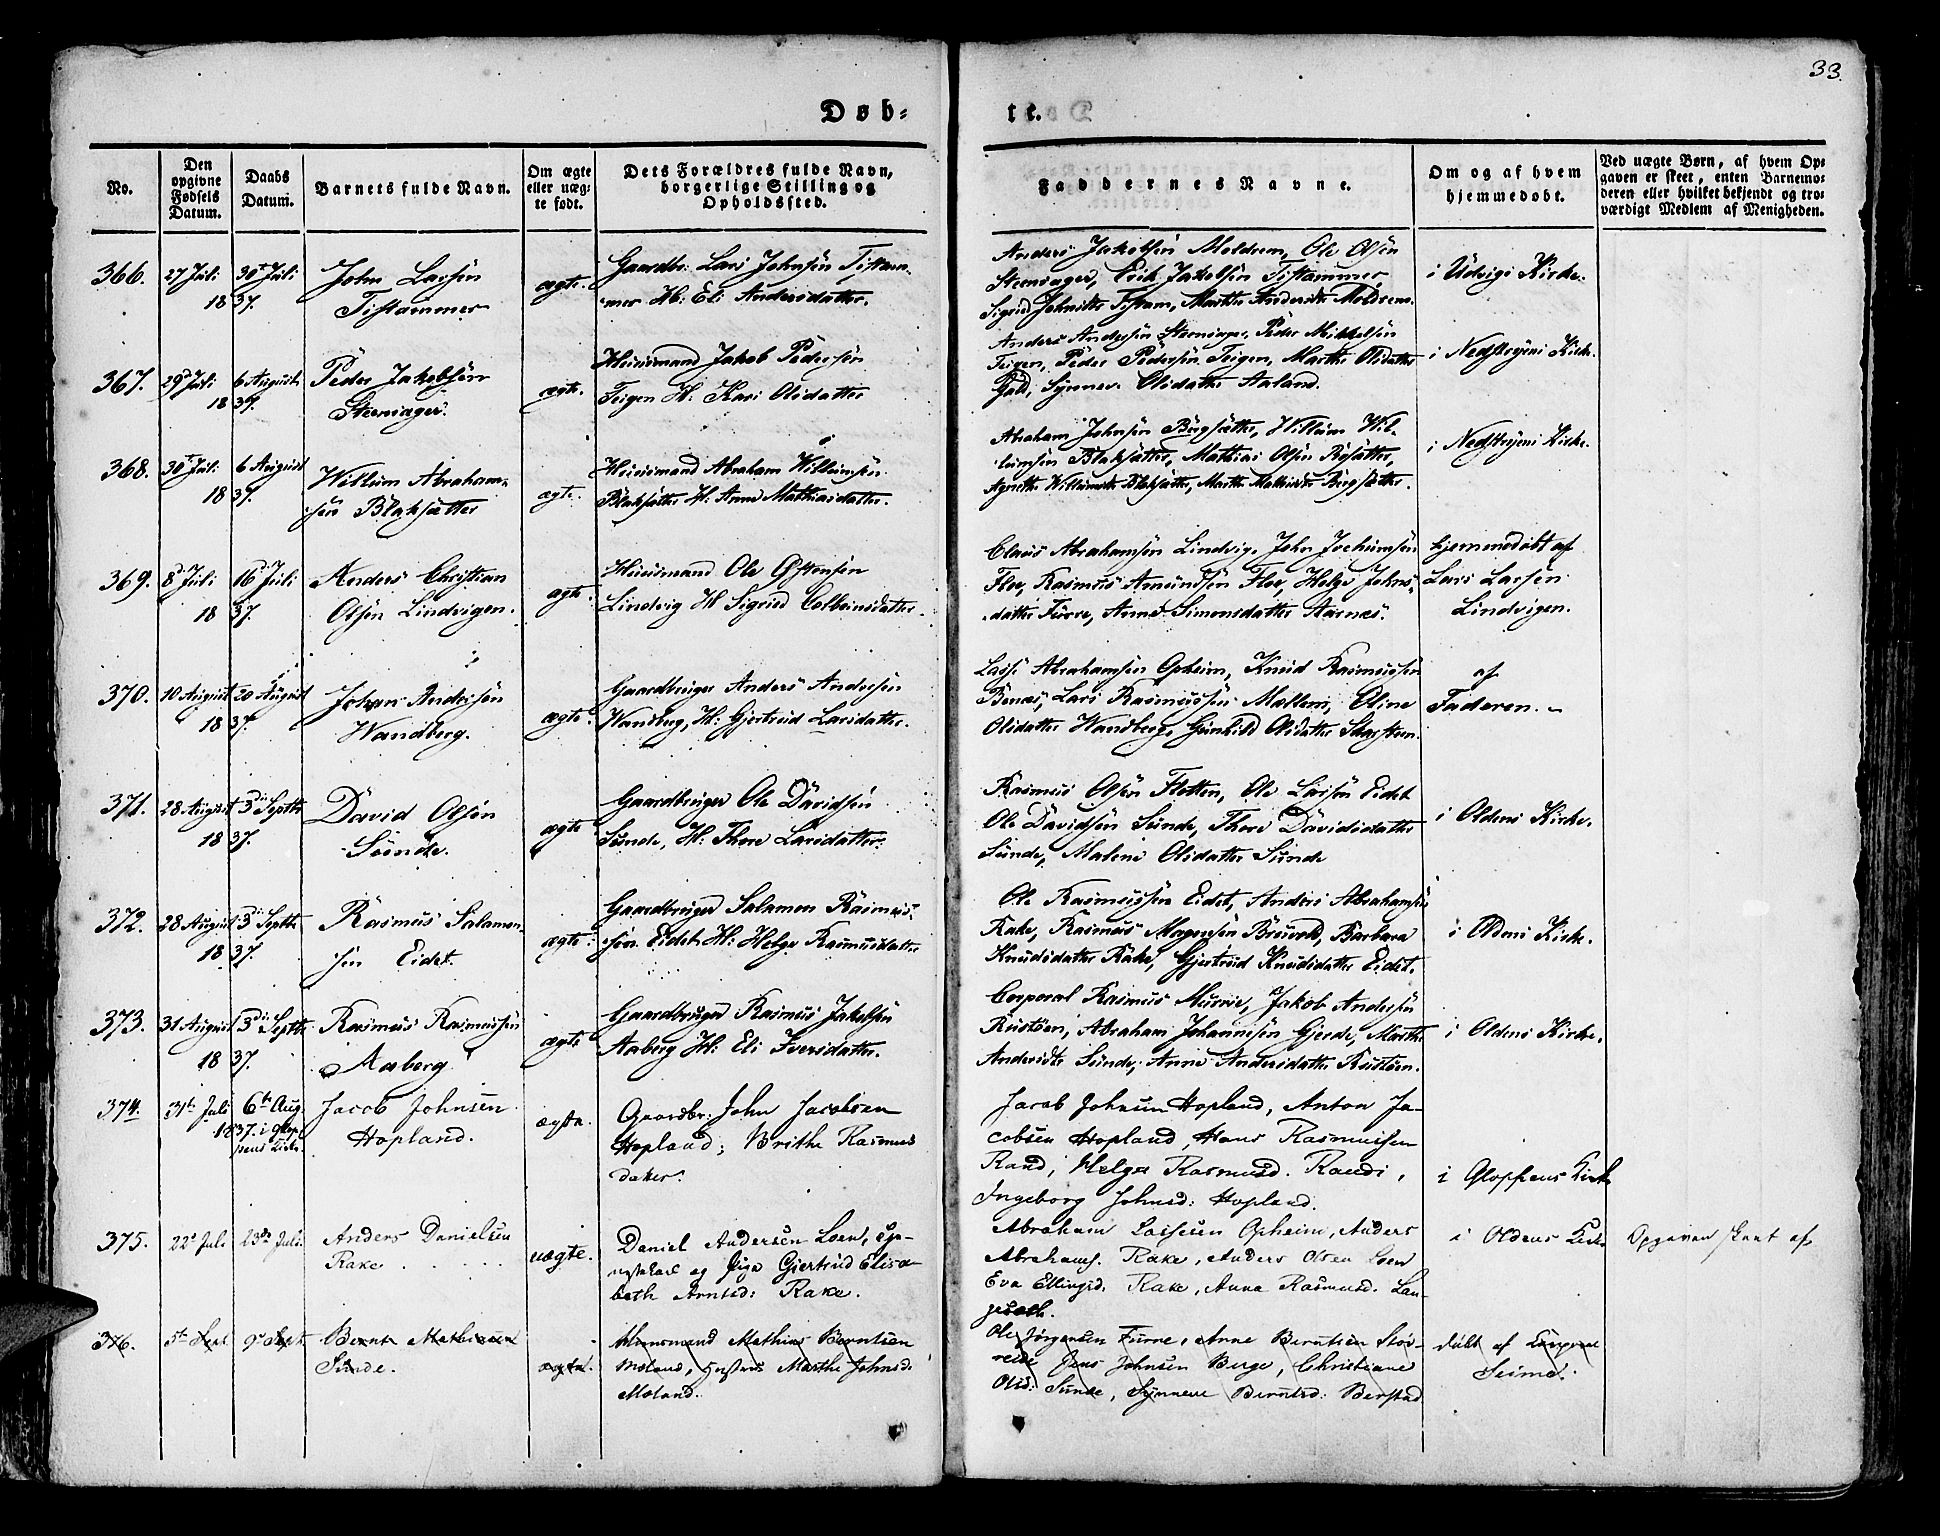 33.
Døb-
te.
No.
Den opgivne Fødsels Datum.
Daabs Datum.
Barnets fulde Navn.
Om ægte eller uæg-te født.
Dets Forældres fulde Navn, borgerlige Stilling og Opholdssted.
Faddernes Navne.
Om og af hvem hjemmedøbt.
Ved uægte Børn, af hvem Op-gaven er skeet, enten Barnemo-deren eller hvilket bekjendt og tro-værdigt Medlem af Menigheden.
366. 27 Juli 30t Juli John Larsen
18 37. Tistammer
ægte.
Gaardbr: Lars Johnsen Tistam-
mer H: Eli Andersdatter.
Anders Jakobsen Moldrem, Ole Olsen
Steensager, Erik Jakobsen Tistammer,
Sigrid Johnsdtr Tistam, Marthe Andersdtr Moldrem.
i Udvigs Kirke.
367. 29d Juli 6 August Peder Jakobsen
18 37. Steensager.
ægte.
Huusmand Jakob Pedersen
Teigen H: Kari Olsdatter
Anders Andersen Steensager, Peder Mikkelsen
Teigen, Peder Pedersen Teigen, Marthe Olsdatter
Synneve Olsdatter Aaland.
i Nedstryens Kirke.
368. 30t Juli 6 August Willum Abraham-
18 37. sen Blaksætter
ægte.
Huusmand Abraham Willumsen
Blaksætter H: Anne Mathiasdatter.
Abraham Johnsen Bergsætter, Willum Wil-
lumsen Blaksætter, Mathias Olsen
Agnethe Willumsdtr Blaksætter, Marthe Mathiasdtr Bergsætter.
i Nedstryens Kirke.
369. 8d Juli 16d Juli Anders Christian
18 37. Olsen Lindvigen.
ægte.
Huusmand Ole Ostensen
Lindvig H: Sigrid Colbeinsdatter.
Claus Abrahamsen Lindvig, John Jochumsen
Floe, Rasmus Amundsen Floe, Helge Johns-
datter Furre, Anne Simonsdatter Aarnes.
hjemmedøbt af
Lars Larsen
Lindvigen.
370. 10 August 20 August Johan Andersen
18 37. Wandberg.
ægte.
Gaardbruger Anders Andersen
Wandberg, H: Gjertrud Larsdatter.
Lasse Abrahamsen Opheim, Knud Rasmussen
Bønes, Lars Rasmussen Mællem, Eline
Olsdatter Wandberg, Gunhild Olsdatter Skarsteen.
af
Faderen.
371. 28 August 3die Septbr David Olsen
18 37. Sunde.
ægte
Gaardbruger Ole Davidsen
Sunde, H: Thore Larsdatter.
Rasmus Olsen Flotten, Ole Larsen Eidet
Ole Davidsen Sunde, Thore Davidsdatter
Sunde, Malene Olsdatter Sunde
i Oldens Kirke.
372. 28 August 3die Septbr Rasmus Salamon-
18 37. sen Eidet.
ægte.
Gaardbruger Salamon Rasmus-
sen Eidet H: Helge Rasmusdatter
Ole Rasmussen Eidet, Anders Abrahamsen
Rake, Rasmus Mogensen Bruvold, Barbara
Knudsdatter Rake, Gjertrud Knudsdatter Eidet.
i Oldens Kirke.
373. 31 August 3die Septbr Rasmus Rasmussen
18 37. Aaberg
ægte
Gaardbruger Rasmus Jakobsen
Aaberg H: Eli Iversdatter.
Corporal Rasmus Murrie, Jakob Andersen
Rustøen, Abraham Johannessen Gjerde, Marthe
Andersdtr Sunde, Anne Andersdatter Rustøen.
i Oldens Kirke.
374. 31te Juli 6te Aug. Jacob Johnsen
1837. i Glop-
pens Kirke Hopland.
ægte.
Gaardbr: John Jacobsen
Hopland; Brithe Rasmus
datter.
Jacob Johnsen Hopland, Anton Ja-
cobsen Hopland, Hans Rasmussen
Rand, Helga Rasmusd. Raudi,
Ingeborg Johnsd: Hopland.
i Gloppens Kirke
375. 22e Juli 23de Juli. Anders Danielsen
Rake
uægte.
Daniel Andersen Loen, En-
og Pige Giertrud Elisa-
beth Arntsd: Rake.
Abraham Lassesen Opheim, Anders
Abrahams. Rake, Anders Olsen Loen
Eva Ellingsd: Rake, Anna Rasmusd. Lan-
i Oldens Kirke
Opgaven skeet af
376. 5te Sept 9e Sept. Bernt Mathiesen
Sunde.
ægte.
Huusmand Mathias Berntsen
Moland, Hustrue Marthe Johnsd:
Moland.
Ole Jørgensen Furne, Anne Berntsen Stos-
reide Jens Johnsen Berge, Christiane
Olsd: Sunde, Synneve Berntsd: Berstad
døbt af
Seime.